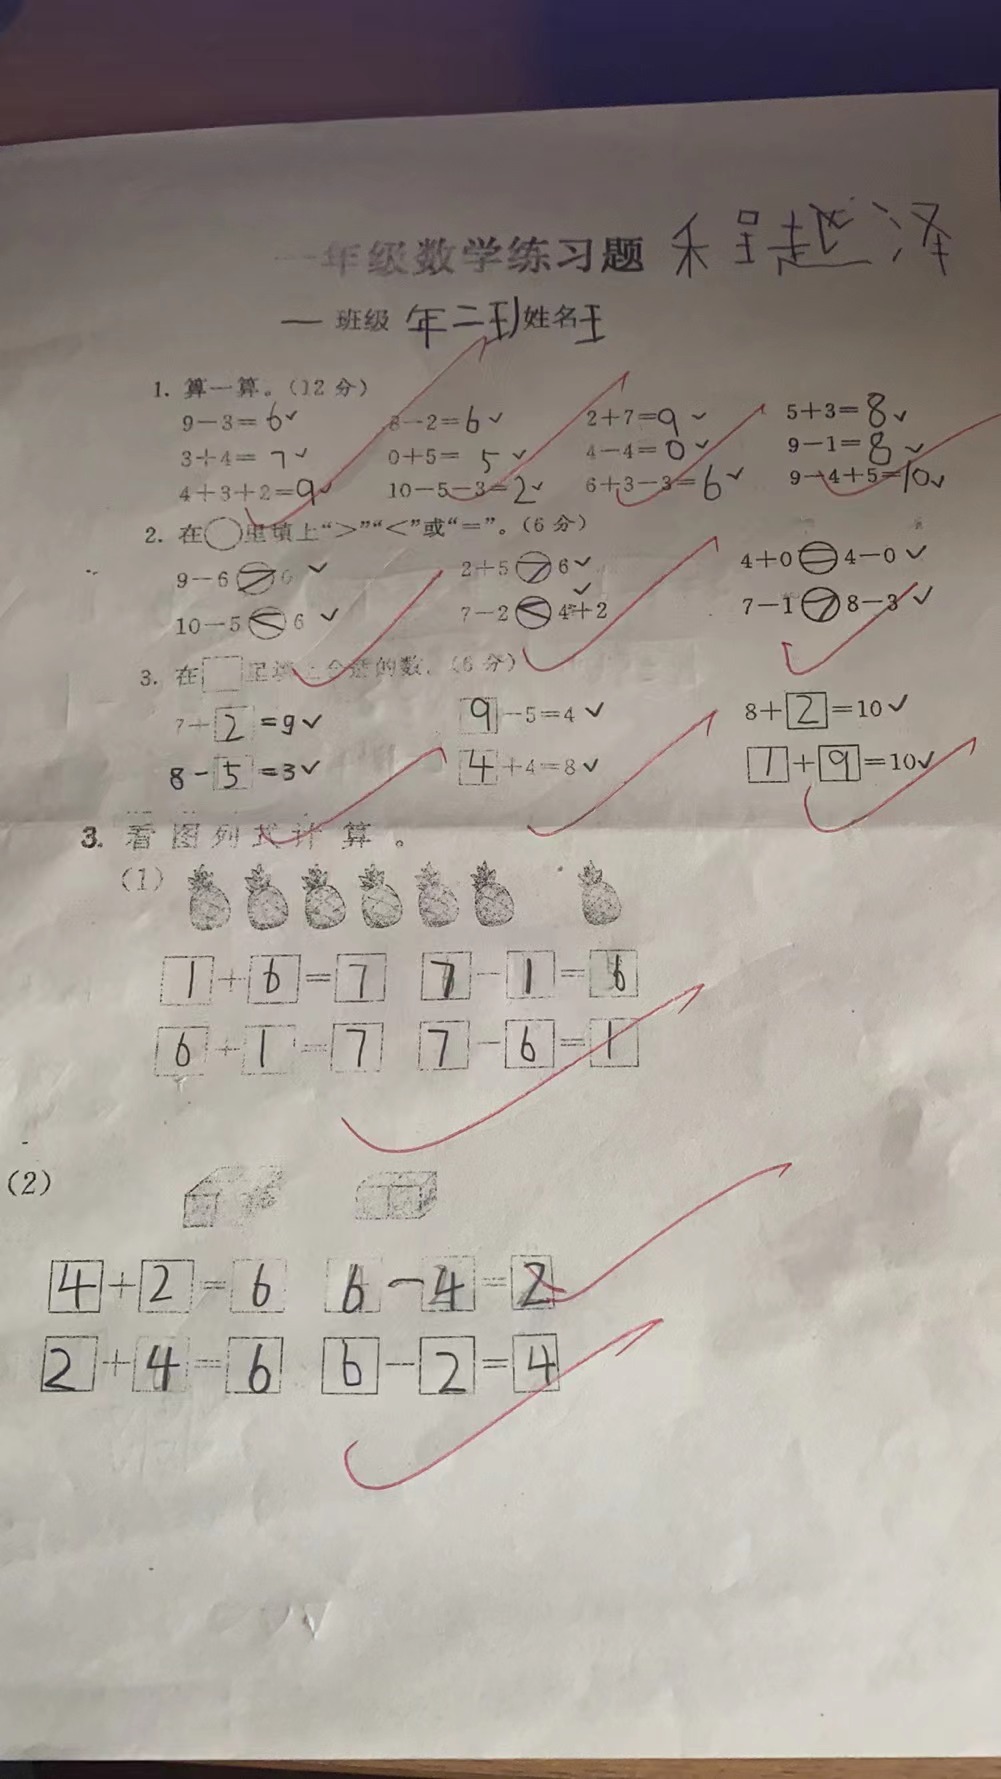 一年级数学练习题 程越泽
一 班级 年二班 姓名 王
1. 算一算。(12分)
9-3=6 8-2=6 2+7=9 5+3=8
3+4=7 0+5=5 4-4=0 9-1=8
4+3+2=9 10-5-3=2 6+3-3=6 9-4+5=10
2. 在○里填上“>”“<”或“=”。(6分)
9-6 6 2+5>6 4+0=4-0
10-5<6 7-2<4+2 7-1>8-3
3. 在□里填上合适的数。(6分)
7+2=9 9-5=4 8+2=10
8-5=3 4+4=8 1+9=10
3. 看图列式计算。
(1)
1+6=7 7-1=6
6+1=7 7-6=1
(2)
4+2=6 6-4=2
2+4=6 6-2=4